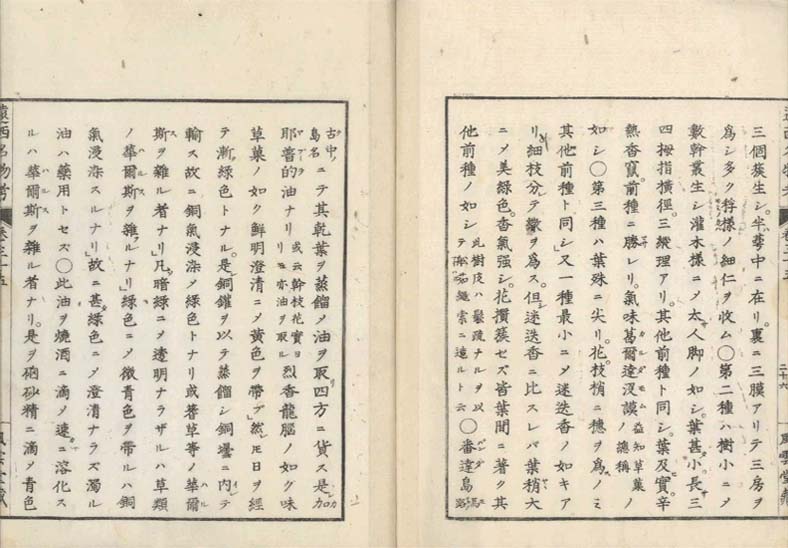 三個簇生シ。半萼中ニ在リ。裏ニ三膜アリテ三房ヲ
爲シ多ク稃樣ノ細仁ヲ收ム〇第二種ハ樹小ニメ
數幹叢生シ灌木樣ニメ太サ人脚ノ如シ。葉甚タ小。長三
四拇指橫徑。三縱理アリ。其他前種ト同シ。葉及實。辛
熱香竄前種ニ勝レリ。氣味葛爾達沒謨 益知草菓ノ總稱 ノ
如シ〇第三種ハ葉殊ニ尖リ。花枝梢ニ穗ヲ爲スノミ
其他前種ト同シ」又一種最小ニメ迷迭香ノ如キアリ
リ。細枝分テ繁ヲ爲ス。但迷迭香ニ比スレバ葉稍大
ニメ美綠色。香氣强シ。花攅簇セズ皆葉間ニ著ク其
他前種ノ如シ 此樹皮ハ鬆疏ナルヲ以テ船茹繩索ニ造ルト云 〇番達島 馬路
古中ノ島名 ニテ其乾葉ヲ蒸餾メ油ヲ取四方ニ貨ス是加
耶普的油ナリ 或云幹枝花實ヨリモ亦油ヲ取ル 烈香龍腦ノ如ク味
草菓ノ如ク鮮明澄清ニメ黄色ヲ帶ブ」然𪜈日ヲ經
テ漸綠色トナル。是銅鑵ヲ以テ蒸餾シ銅壜ニ内テ
輸ス故ニ銅氣浸染メ綠色トナリ或蓍草等ノ華爾
斯ヲ雜ル者ナリ」凡暗綠ニメ透明ナラザルハ草類
ノ華爾斯ヲ雜ルナリ」綠色ニメ微青色ヲ帶ルハ銅
氣浸染スルナリ」故ニ甚綠色ニメ澄清ナラズ濁ル
油ハ藥用トセズ〇此油ヲ燒酒ニ滴メ速ニ溶化ス
ルハ華爾斯ヲ雜ル者ナリ。是ヲ硇砂精ニ滴メ青色